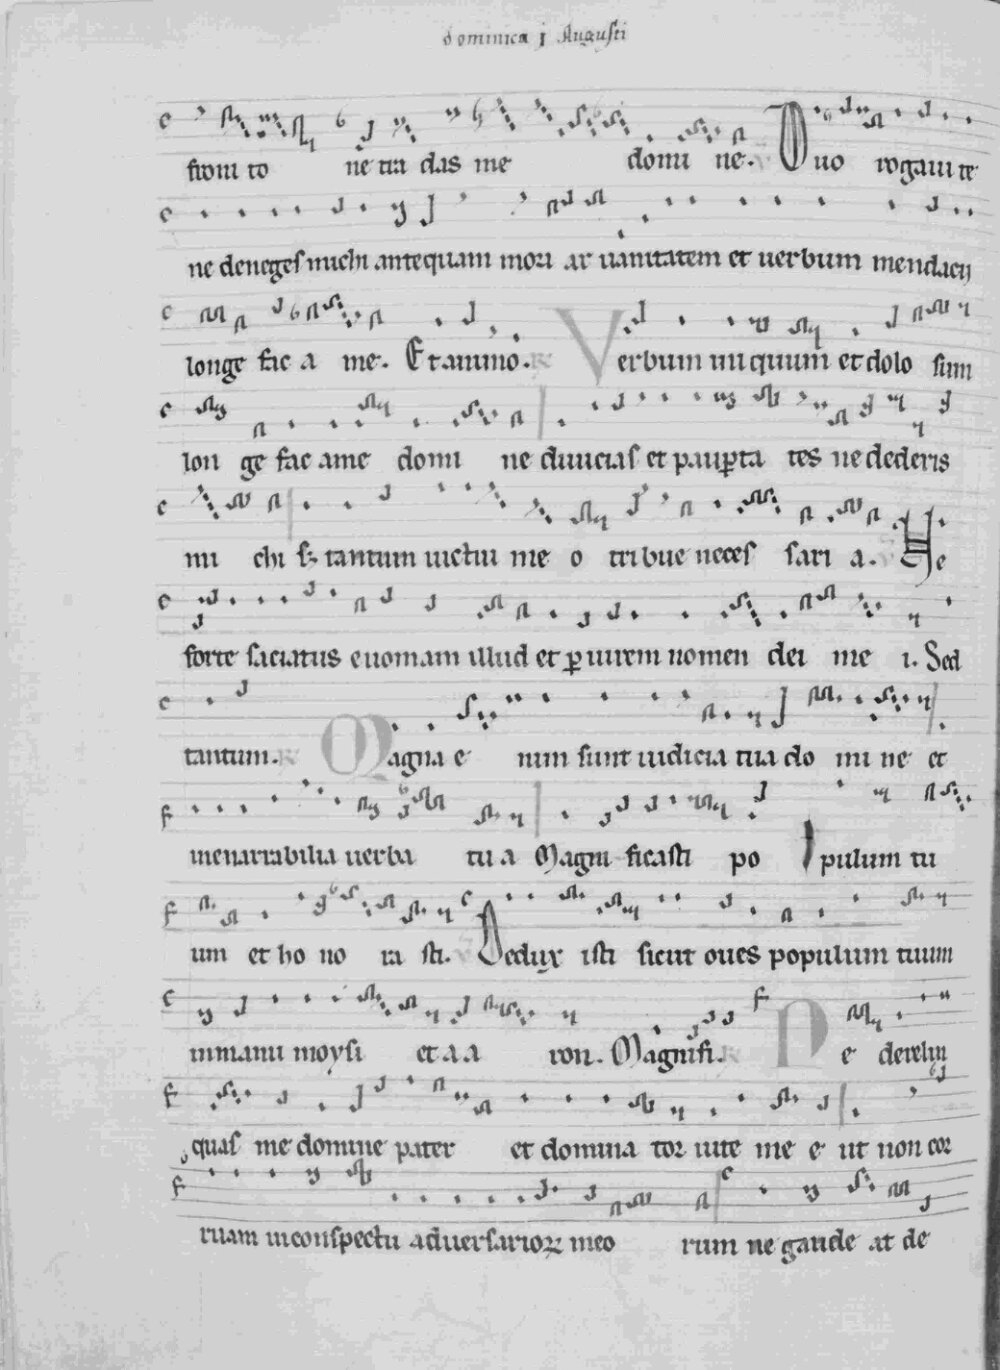 dominica i Augusti
froni to ne tra das me domi ne. Duo rogaui te
ne deneges michi antequam mori ar uanitatem et uerbum mendacij
longe fac a me. Et animo. R
Verbum iniquum et dolo sum
lon ge fac a me domi ne diuicias et paup̱ta tes ne dederis
mi chi sꝫ tantum uictui me o tribue neces sari a. Ne
forte saciatus euomam illud et ꝑ iurem nomen dei me i. Sed
tantum. R Magna e nim sunt iudicia tua do mi ne et
inenarrabilia uerba tu a Magni ficasti po pulum tu
um et ho no ra sti. Dedux isti sicut oues populum tuum
in manu moysi et a a ron. Magnifi. R Ne derelin
quas me domine pater et domina tor uite me e ut non cor
ruam in conspectu aduersarioꝝ meo rum ne gaude at de